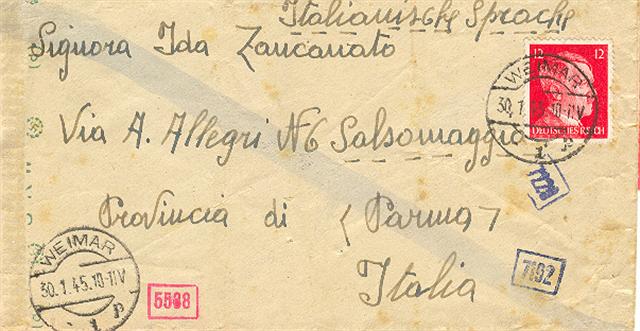 Italianische Sprache
Signora Ida Zancanato
12 12
WEIMAR
30.1.45.10-11V
DEUTSCHES REICH
Via A. Allegri N6 Salsomaggio
Provincia di (Parma)
Italia
WEIMAR
30.1.45.10-11V
5508
7192